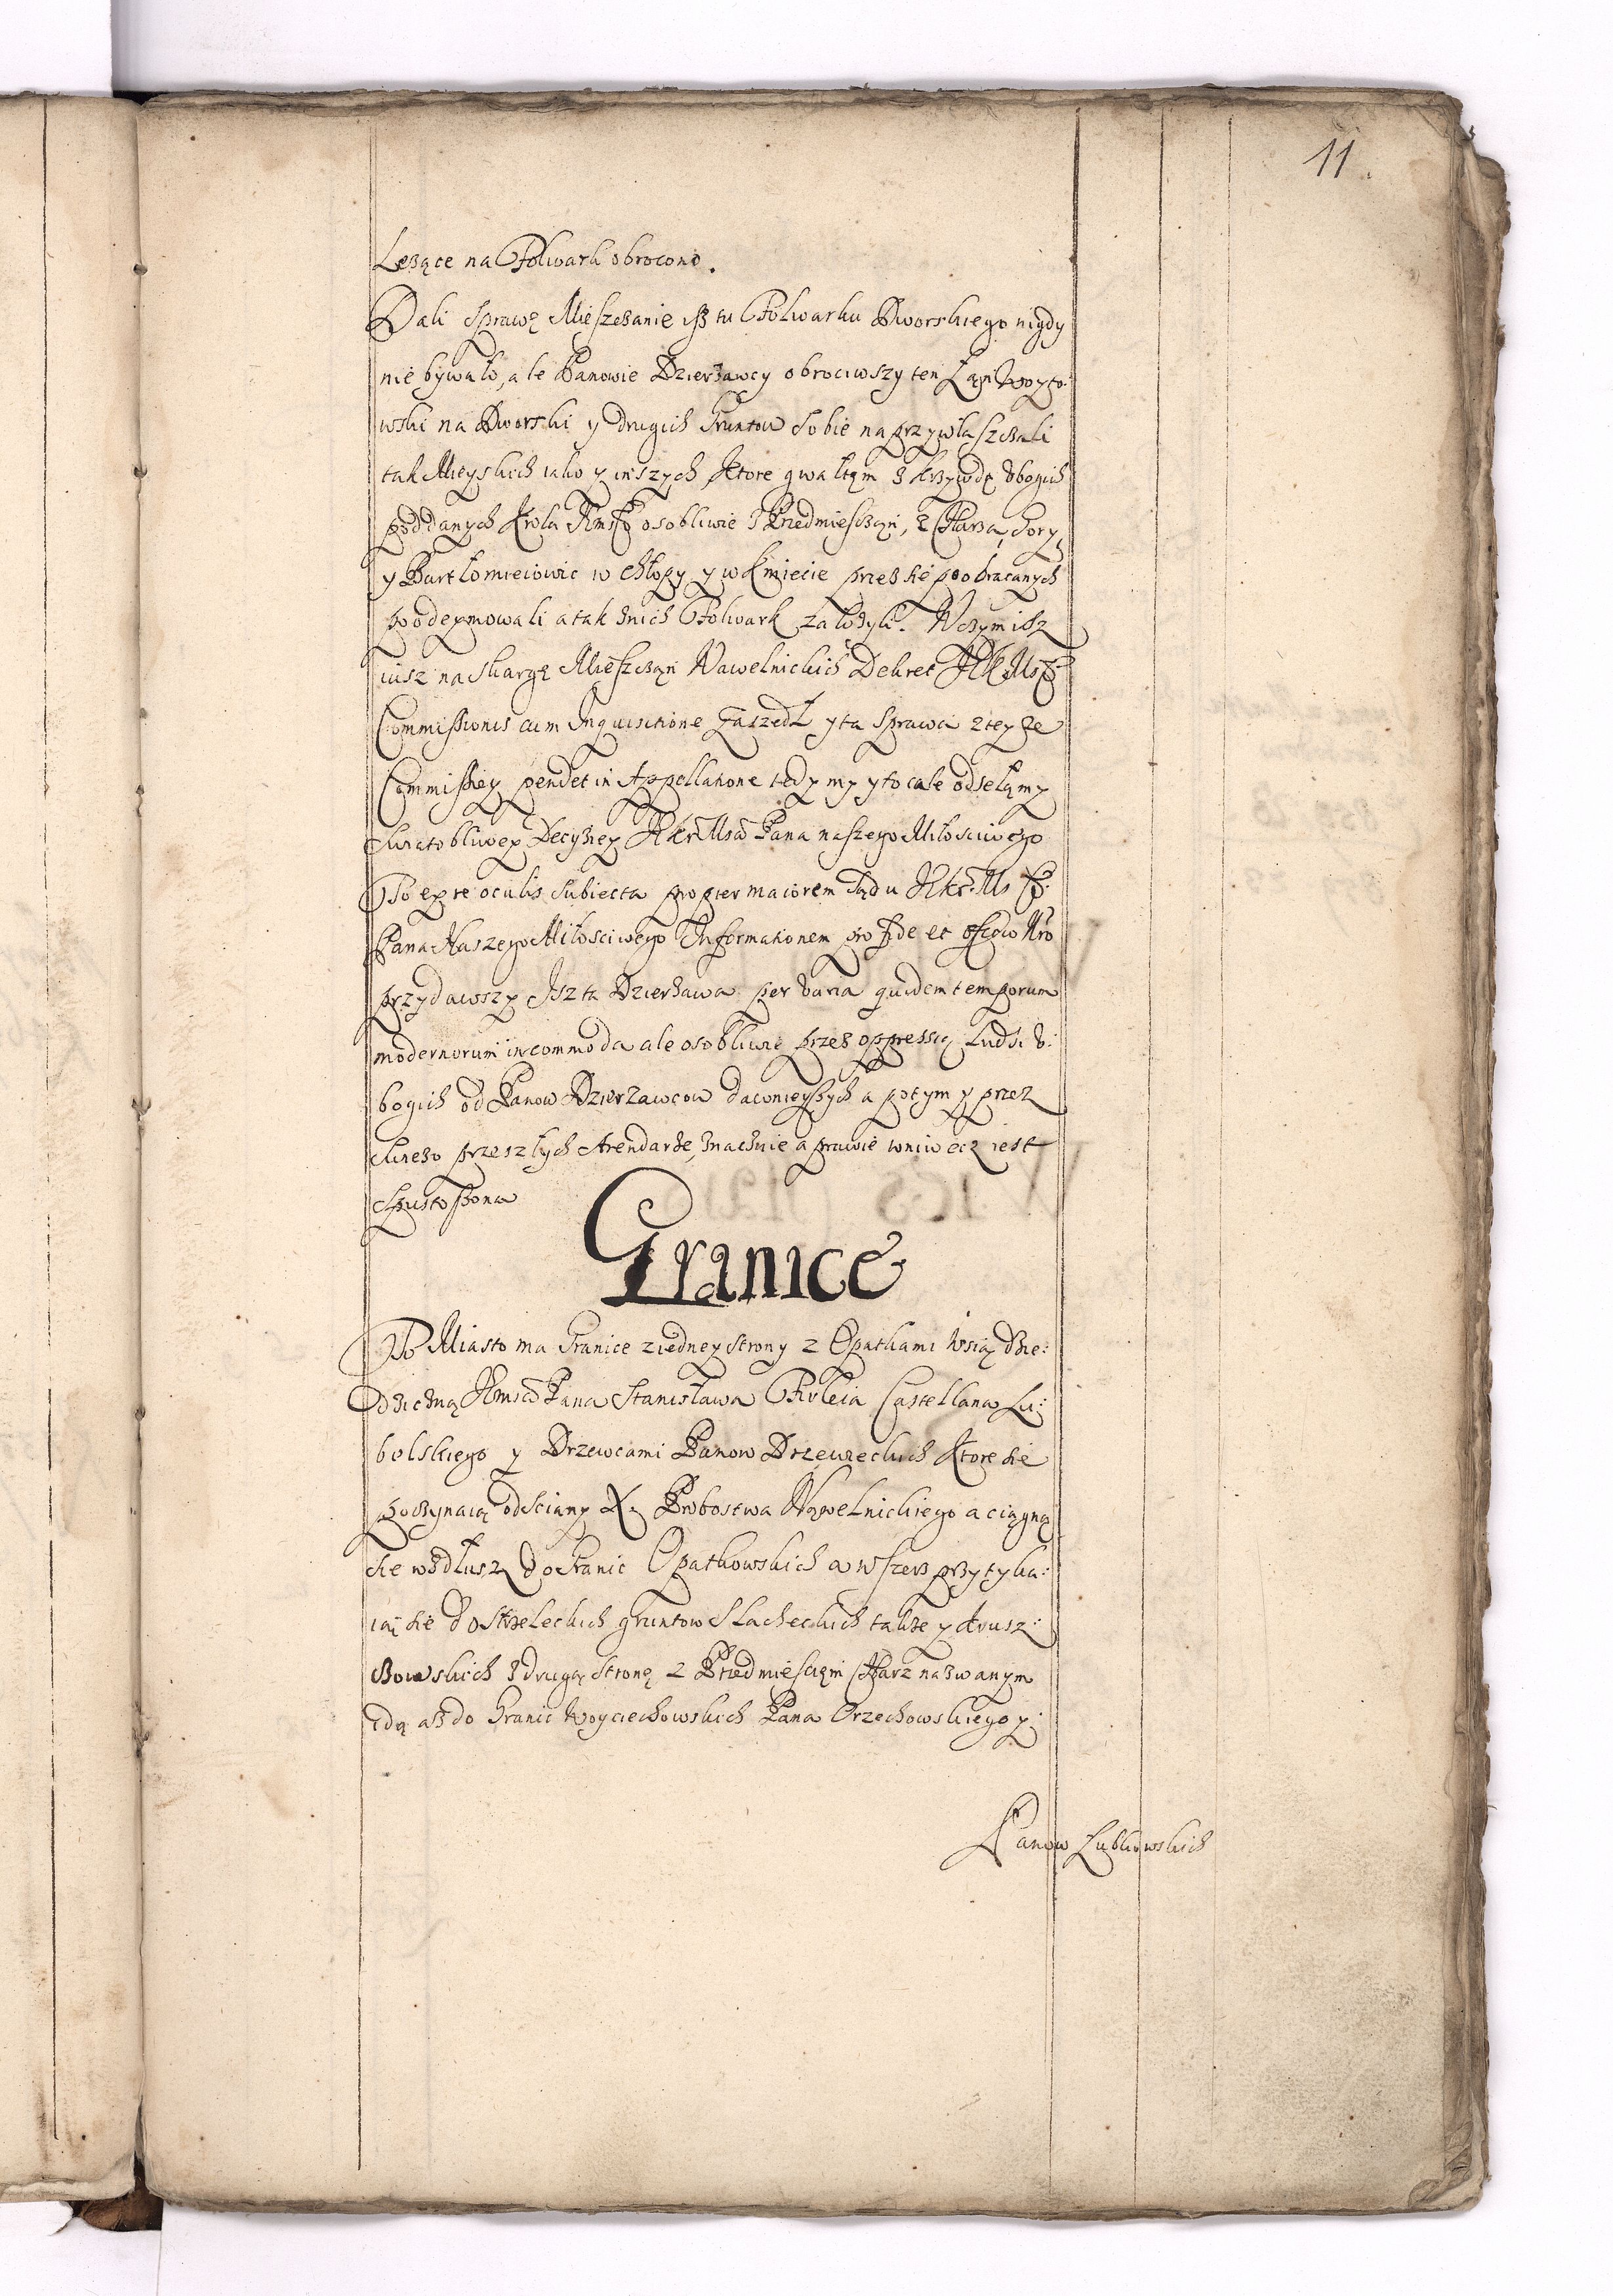 11.
Leżące na Folwark obrocono.
Dali sprawę Mieszczanie isz tu Folwarku Dworskiego nigdy
nie bywało, ale Panowie Dzierżawcy obrociwszy ten Łan Woyto:
wski na Dworski y drugich Gruntow sobie naprzywłaszczali
tak Mieyskich iako y inszych ktore gwałtęm z krzywdą ubogich
poddanych Krola Jms osobliwie z Przedmieszczan, z Charza, Gory,
y Bartłomieiowic w chłopy y w kmiecie przez się poobracanych
podeymowali a tak znich Folwark założyli. W czym isz
iusz na skargę Mieszczan Wawelnickich Dekret JKMsci
Commissionis cum Inquisitione zaszedł y ta sprawa z teyże
Commissiey pendet in Appellatione tedy my y to cale odsełamy
swiatobliwey Decyziey JKrMsci Pana naszego Miłosciwego
To expre oculis subiecta propter maiorem Sądu JKr Ms
Pana Naszego Miłosciwego Informationem pro fide et officio Nro
przydawszy Isz ta Dzierżawa per varia quidem temporum
modernorum incommoda ale osobliwie przez oppressią Ludzi u:
bogich od Panow Dzierzawcow dawnieyszych a potym y przez
swieżo przeszłych Arendarze, znacznie a prawie wniwecz iest
spustoszona
Granice
To Miasto ma Granice z iedney strony z Opatkami wsią Dzie:
dziczną Jmsci Pana Stanisława Firleia Castellana Lu:
belskiego y Drzewcami Panow Drzewieckich ktore się
poczynaią od sciany X. Probostwa Wąwelnickiego a ciągną
się wzdłusz do Granic Opatkowskich a w szerz przytyka:
ią się do Strzeleckich gruntow Slacheckich także y Krusz:
zowskich z drugą stronę z Przedmiesciem Charz nazwanym
idą aż do Granic Woyciechowskich Pana Orzechowskiego y
Panow Lubkowskich